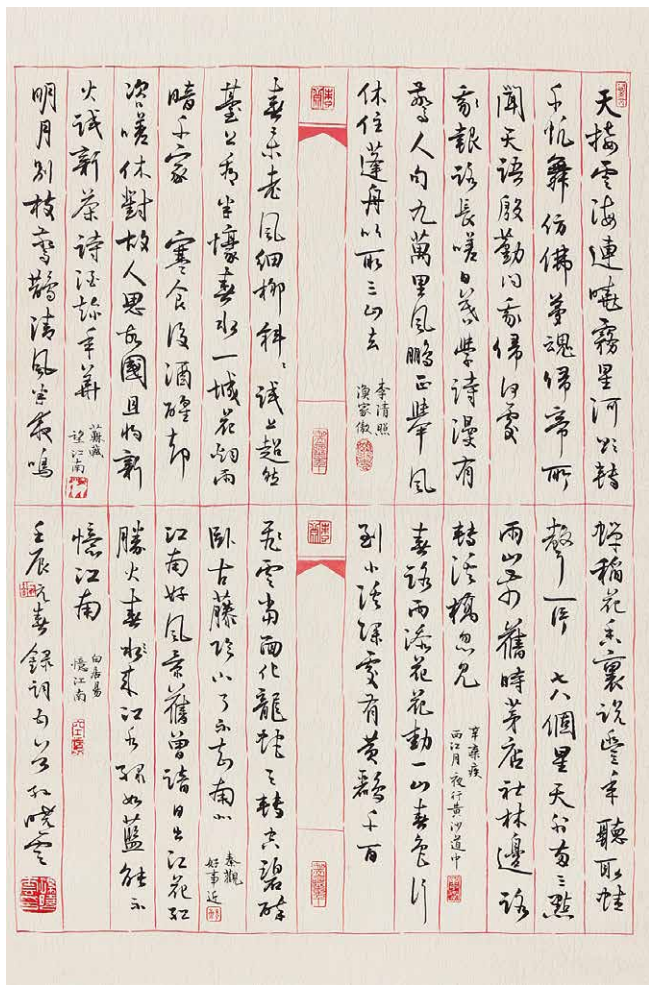 天接雲海連曉霧星河欲轉
千帆舞仿佛夢魂歸帝所
聞天語殷勤問我歸何處
我報路長嗟日暮學詩漫有
驚人句九萬里風鵬正舉風
休住蓬舟吹取三山去
李清照
漁家傲
春未老風細柳斜〻試上超然
臺上看半壕春水一城花烟雨
暗千家 寒食後酒醒却
咨嗟休對故人思故國且將新
火試新茶詩酒趁年華
蘇軾
望江南
明月別枝驚鵲清風半夜鳴
蟬稻花香裏說豐年聽取蛙
聲一片 七八個星天外兩三點
雨山前舊時茅店社林邊路
轉溪橋忽見
辛棄疾
西江月 夜行黃沙道中
春路雨添花花動一山春色行
到小溪深處有黃鸝千百
飛雲當面化龍蛇夭轉空碧醉
臥古藤陰下了不知南北
秦觀
好事近
江南好風景舊曾諳日出江花紅
勝火春水來江水綠如藍能不
憶江南
白居易
憶江南
壬辰元春錄詞句 曉雲